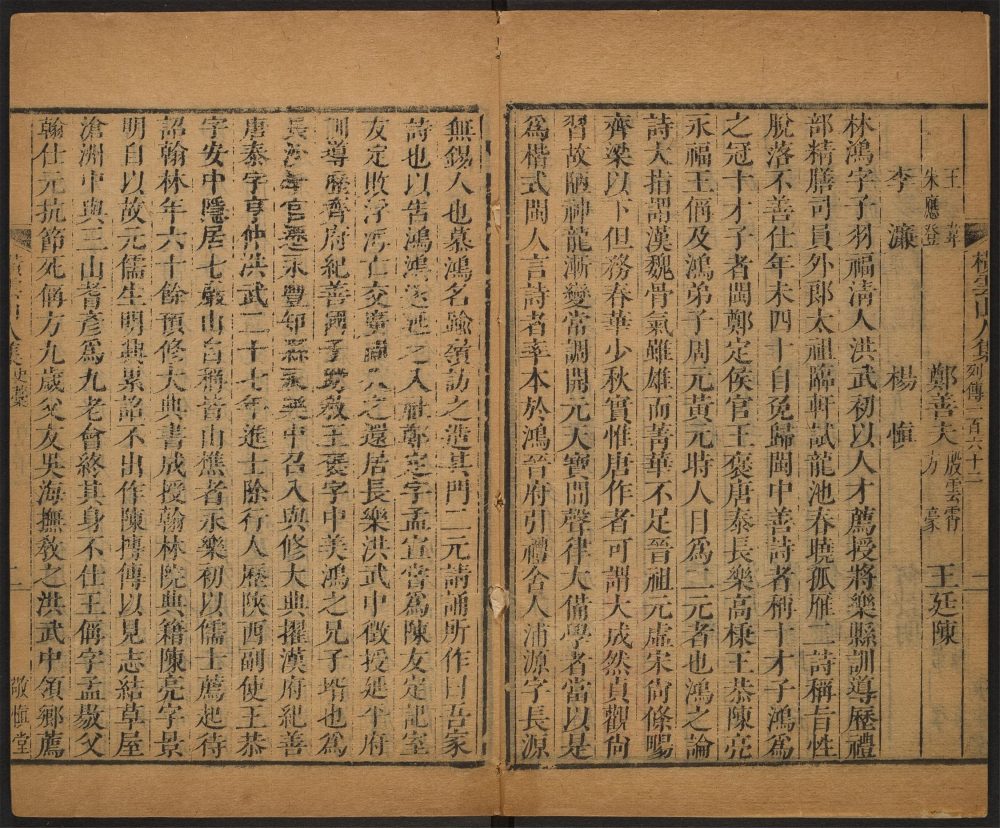 橫雲山人集列傳一百六十二 一
王韋
朱應登
鄭善夫 殷雲霄 方豪
王廷陳
李濂
楊慎
林鴻字子羽福清人洪武初以人才薦授將樂縣訓導歷禮
部精膳司員外郎太祖臨軒試龍池春曉孤雁二詩稱旨性
脫落不善仕年未四十自免歸閩中善詩者稱十才子鴻為
之冠十才子者閩鄭定侯官王褒唐泰長樂高棅王恭陳亮
永福王偁及鴻弟子周元黃元時人目為二元者也鴻之論
詩大指謂漢魏骨氣雖雄而菁華不足晉祖元虛宋尚條暢
齊梁以下但務春華少秋實惟唐作者可謂大成然貞觀尚
習故陋神龍漸變常調開元天寶間聲律大備學者當以是
為楷式閩人言詩者率本於鴻晉府引禮舍人浦源字長源
無錫人也慕鴻名踰嶺訪之造其門二元請誦所作曰吾家
詩也以告鴻鴻延之入社鄭定字孟宣嘗為陳友定記室
友定敗浮海亡交廣間久之還居長樂洪武中徵授延平府
訓導歷齊府紀善國子助教王褒字中美鴻之兄子壻也為
長沙學官遷永豐知縣永樂中召入與修大典擢漢府紀善
唐泰字亨仲洪武二十七年進士除行人歷陝西副使王恭
字安中隱居七巖山自稱皆山樵者永樂初以儒士薦起待
詔翰林年六十餘預修大典書成授翰林院典籍陳亮字景
明自以故元儒生明興累詔不出作陳摶傳以見志結草屋
滄洲中與三山耆彥為九老會終其身不仕王偁字孟敭父
翰仕元抗節死偁方九歲父友吳海撫教之洪武中領鄉薦
橫雲山人集史藁 二 敬慎堂